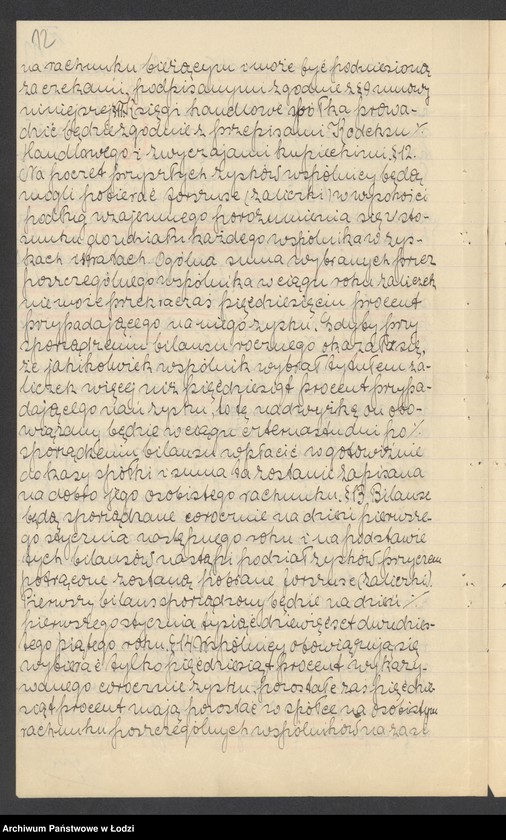 12
na rachunku bieżącym i może być podniesioną
za czekami, podpisanymi zgodnie z § umowy
niniejszej. § 11. Księgi handlowe spółka prowa-
dzić będzie zgodnie z przepisami Kodeksu ⁒
Handlowego i zwyczajami kupieckimi. § 12.
Na poczet przyszłych zysków wspólnicy będą
mogli pobierać forszuse (zaliczki) w wysokości
podług wzajemnego porozumienia się w sto-
sunku do udziału każdego wspólnika w zys-
kach i stratach. Ogólna suma wybranych przez
poszczególnego wspólnika w ciągu roku zaliczek
nie może przekraczać pięćdziesięciu procent
przypadającego na niego zysku. Gdyby przy
sporządzeniu bilansu rocznego okazało się,
że jakikolwiek wspólnik wybrał tytułem za-
liczek więcej niż pięćdziesiąt procent przypa-
dającego nań zysku, to tę nadwyżkę on obo-
wiązany będzie w ciągu czternastu dni po ⁒
sporządzeniu bilansu wpłacić w gotowiźnie
do kasy spółki i suma ta zostanie zapisana
na dobro jego osobistego rachunku. § 13. Bilanse
będą sporządzane corocznie na dzień pierwsze-
go stycznia następnego roku i na podstawie
tych bilansów nastąpi podział zysków przyczem
potrącone zostaną pobrane forszuse (zaliczki).
Pierwszy bilans sporządzony będzie na dzień ⁒
pierwszego stycznia tysiąc dziewięćset dwudzies-
tego piątego roku. § 14. Wspólnicy obowiązują się
wybierać tylko pięćdziesiąt procent wykazy-
wanego corocznie zysku, pozostałe zaś pięćdzie-
siąt procent mają pozostać w spółce na osobistym
rachunku poszczególnych wspólników na zasi
Archiwum Państwowe w Łodzi